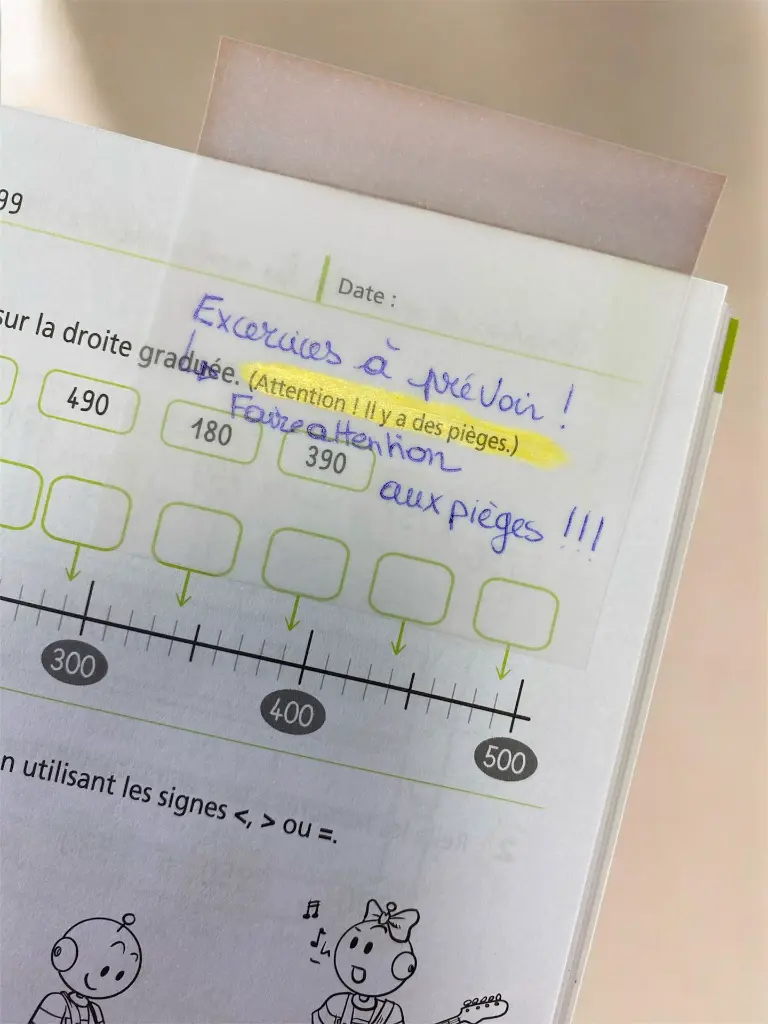 99
Date :
Excercices à prévoir !
sur la droite graduée. (Attention ! Il y a des pièges.)
↳ Faire attention
aux pièges !!!
490 180 390
300 400 500
n utilisant les signes <, > ou =.